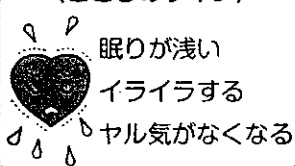 眠りが浅い
イライラする
ヤル気がなくなる